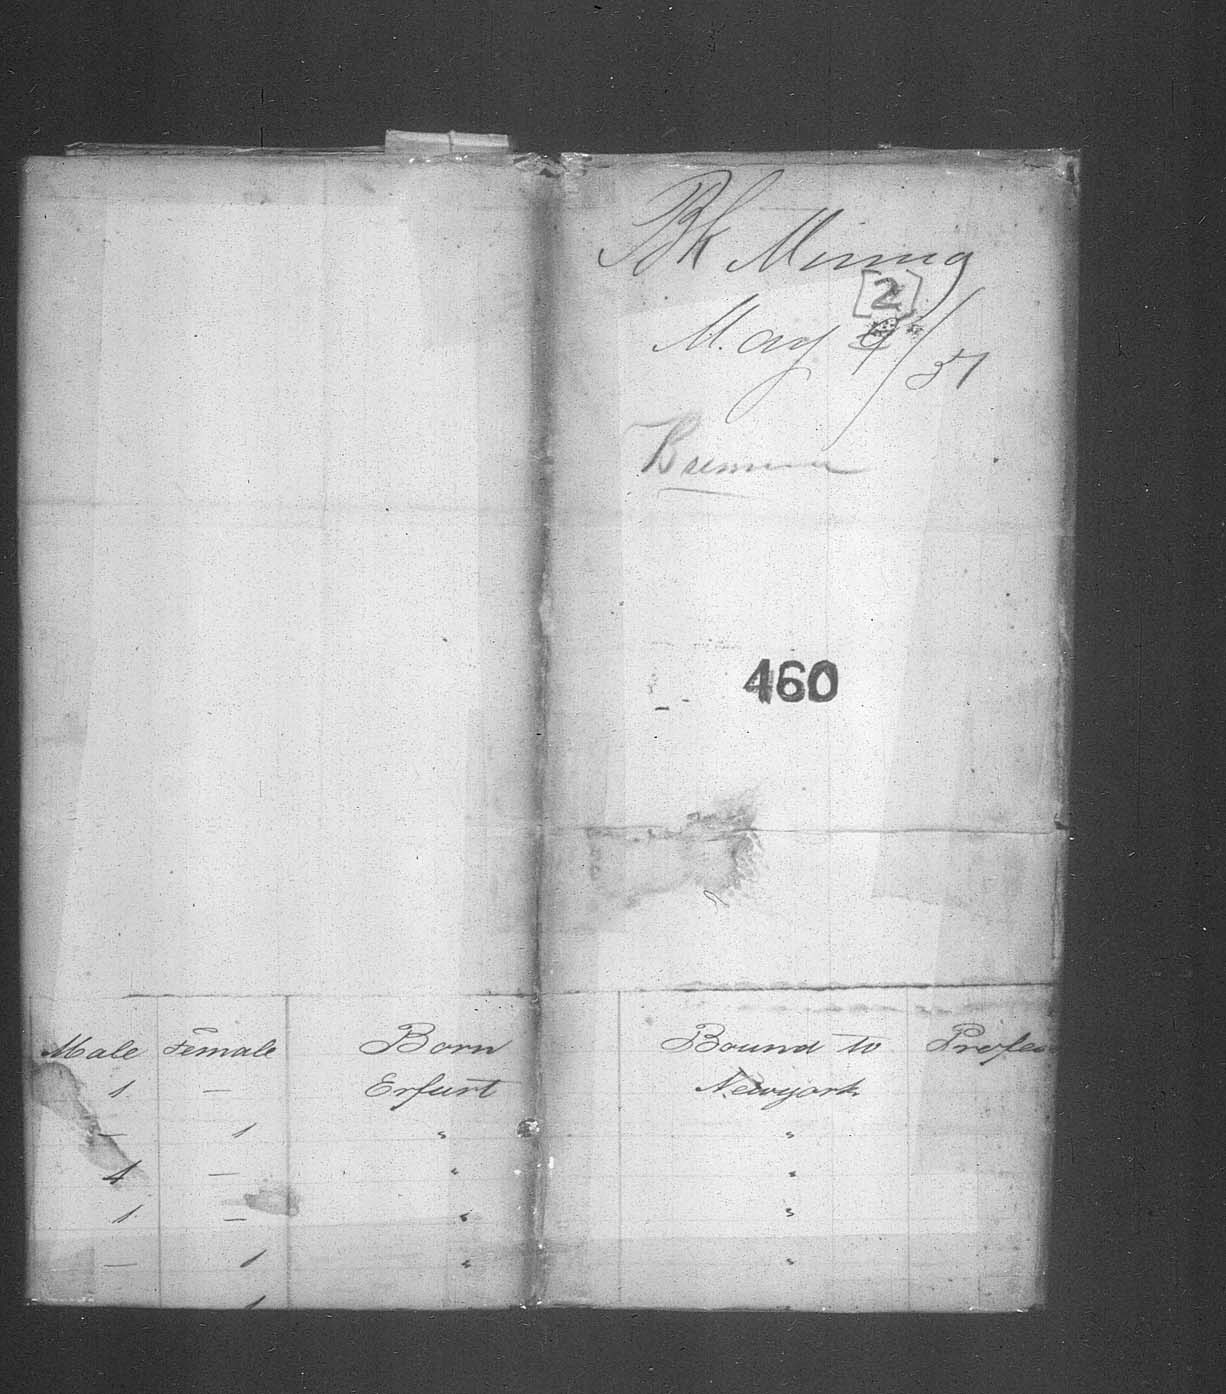 Bk Minna
[2]
May 9th/57
Bremen
460
Male Female Born Bound to Profes
1 — Erfurt Newyork
— 1 " "
1 — " "
1 — " "
— 1 " "
1